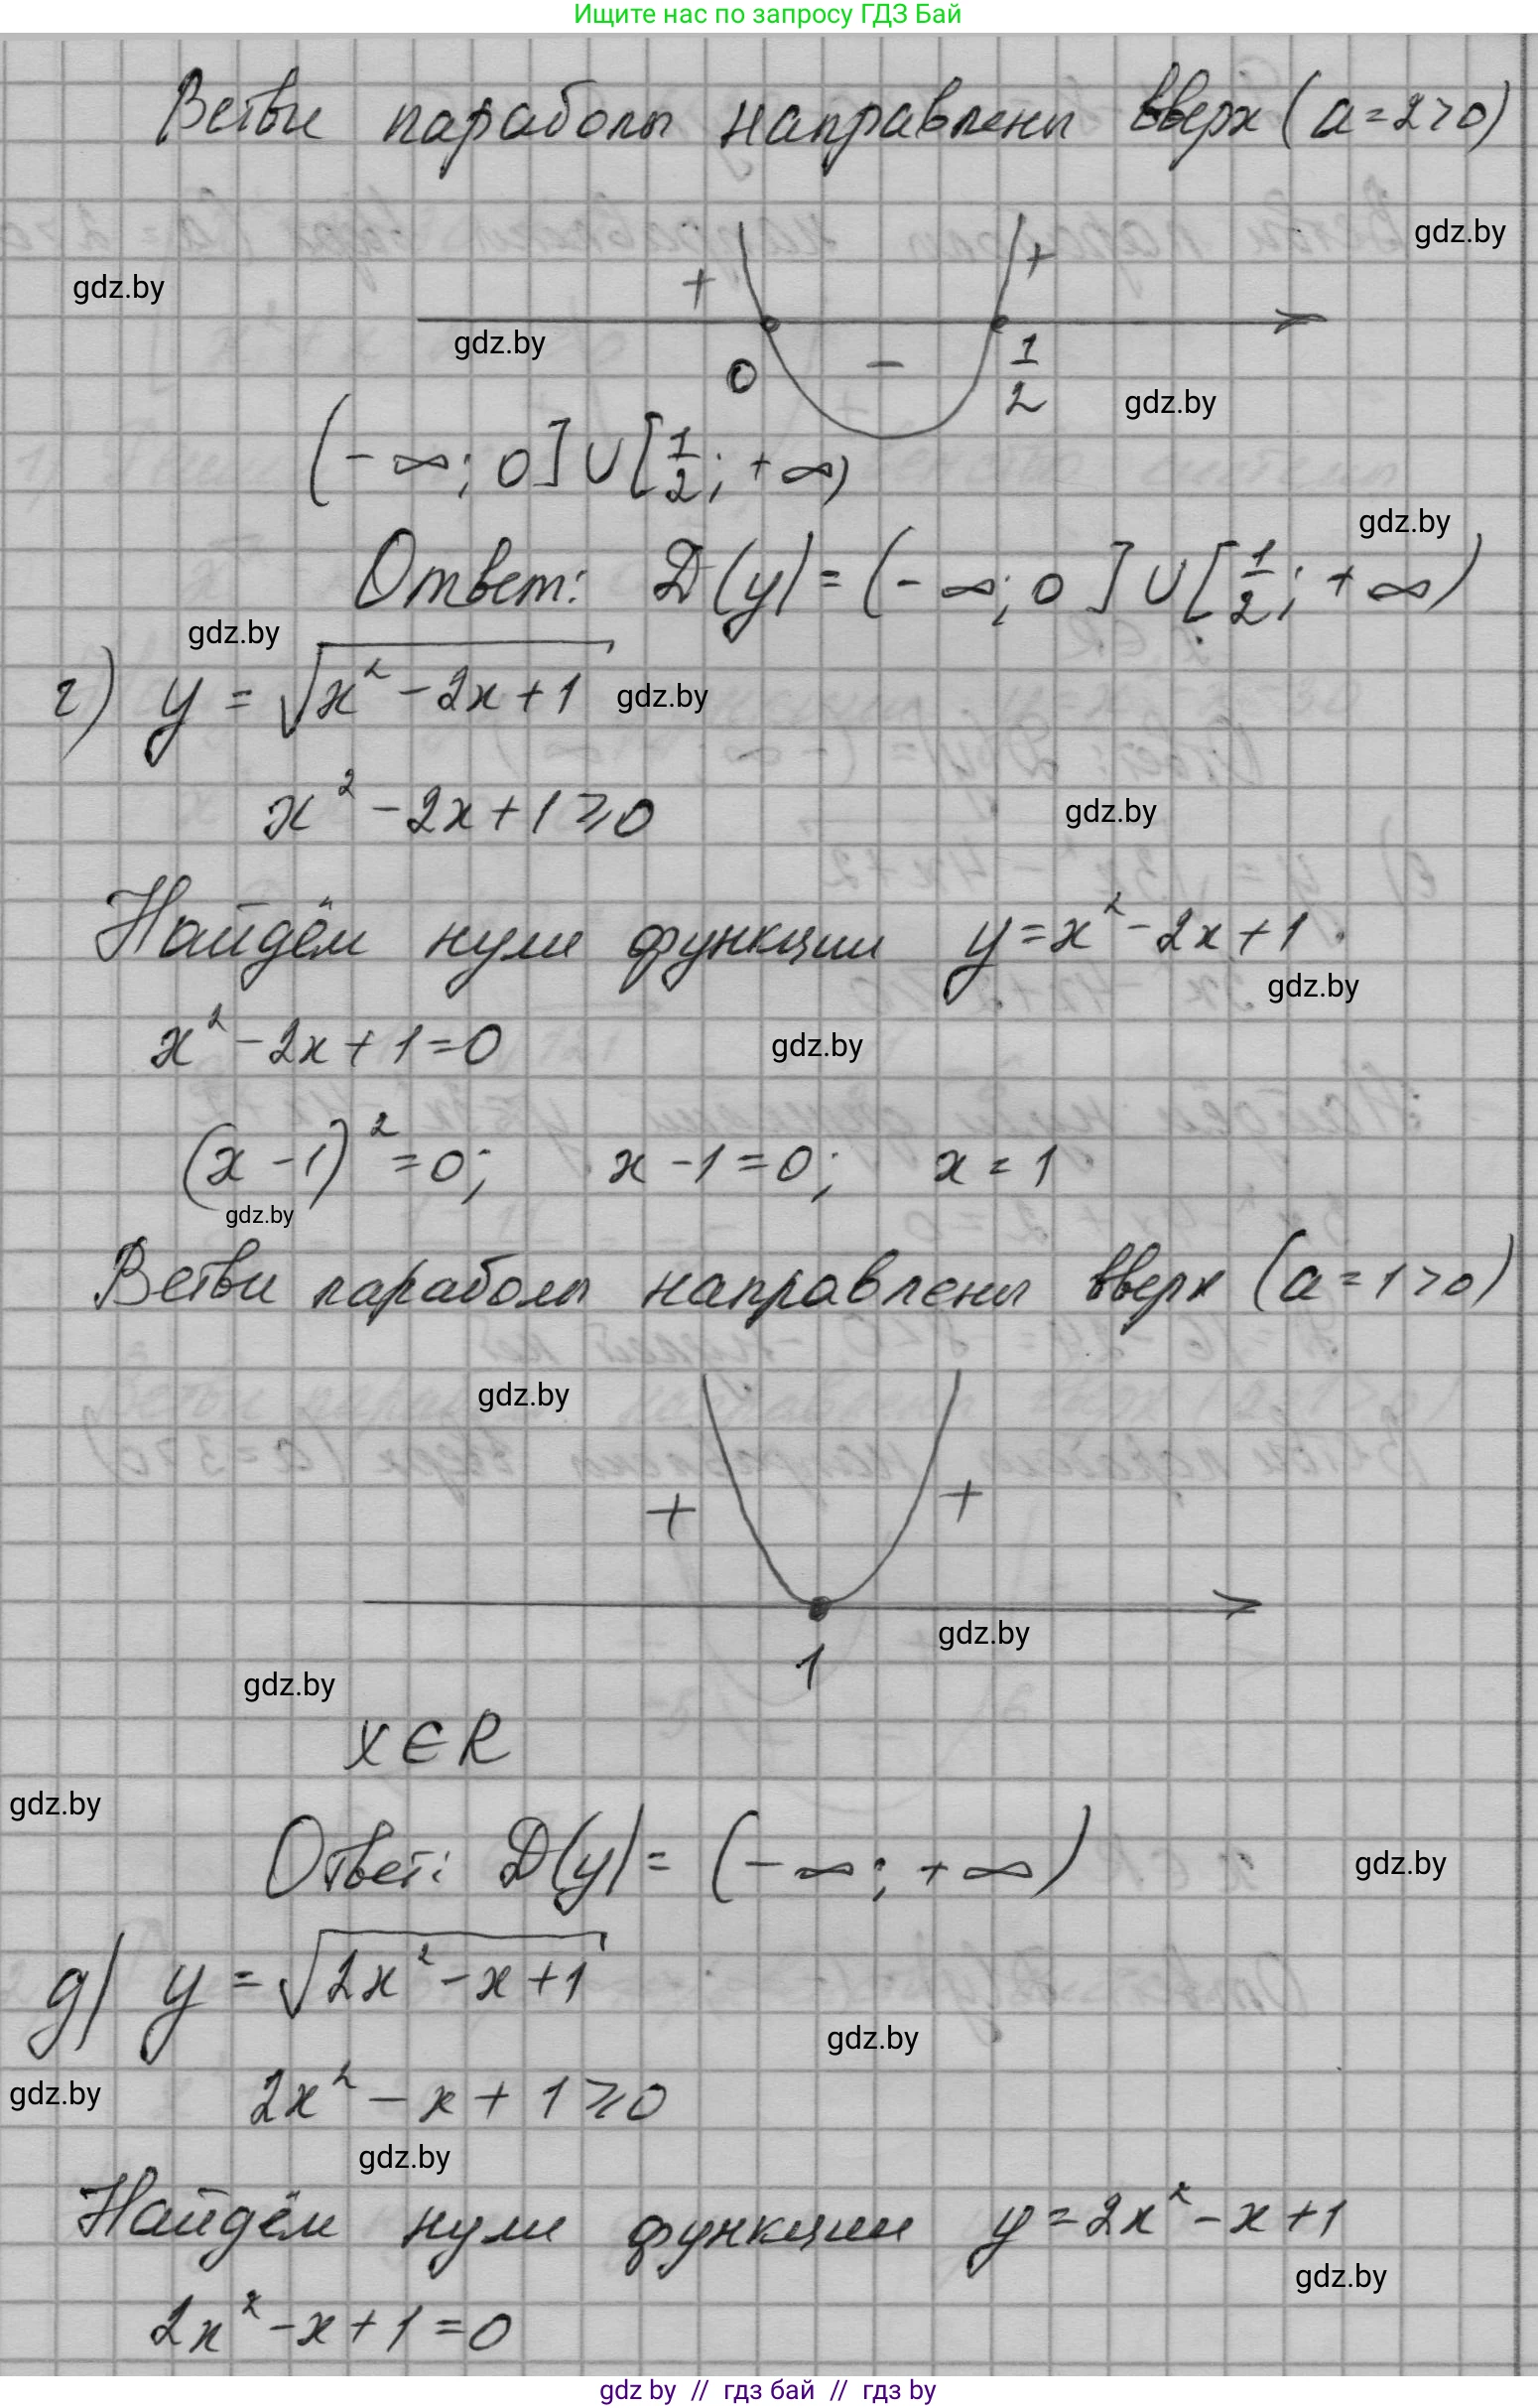 Ищите нас по запросу ГДЗ Бай
Ветви параболы направлены вверх (a=2>0)
gdz.by
gdz.by
+ +
gdz.by
0 − 1/2
gdz.by
(-∞; 0] ∪ [1/2; +∞)
gdz.by
Ответ: D(y) = (-∞; 0] ∪ [1/2; +∞)
gdz.by
г) y = √(x² - 2x + 1) gdz.by
x² - 2x + 1 ≥ 0 gdz.by
Найдём нули функции y = x² - 2x + 1.
gdz.by
x² - 2x + 1 = 0 gdz.by
(x - 1)² = 0; x - 1 = 0; x = 1
gdz.by
Ветви параболы направлены вверх (a=1>0)
gdz.by
+ +
gdz.by
1
gdz.by
x ∈ R
gdz.by
Ответ: D(y) = (-∞; +∞) gdz.by
д) y = √(2x² - x + 1)
gdz.by
gdz.by 2x² - x + 1 ≥ 0
gdz.by
Найдём нули функции y = 2x² - x + 1
gdz.by
2x² - x + 1 = 0
gdz by // гдз бай // гдз by